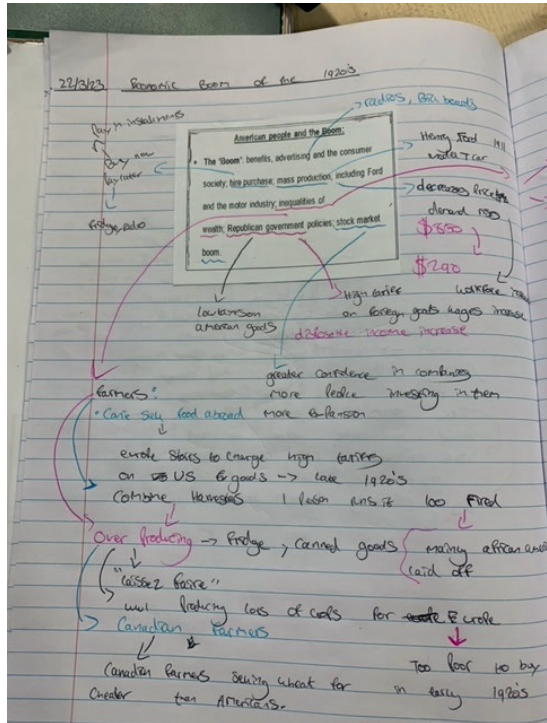 22/3/23 Economic Boom of the 1920's
radios, Bill boards
Pay in instalments
buy now
pay later
fridge, radio
American people and the Boom:
• The 'Boom': benefits, advertising and the consumer
society; hire purchase; mass production, including Ford
and the motor industry; inequalities of
wealth; Republican government policies; stock market
boom.
Henry Ford 1911
Model T car
decreased Price
demand rose
$850
$290
workforce
low tax on
american goods
High tariffs
on foreign goods wages increase
disposable income increase
greater confidence in companies
more People investing in them
more Expansion
farmers:
• Can't sell food abroad
europe starts to charge high tariffs
on US goods → late 1920's
Combine Harvesters 1 Person runs it 100 Fired
Over Producing → fridge, canned goods
mainly african
laid off
"laissez faire"
WW1 Producing lots of crops for Europe
Canadian farmers
Canadian farmers selling wheat for
cheaper than Americans.
Too Poor to buy
in early 1920's